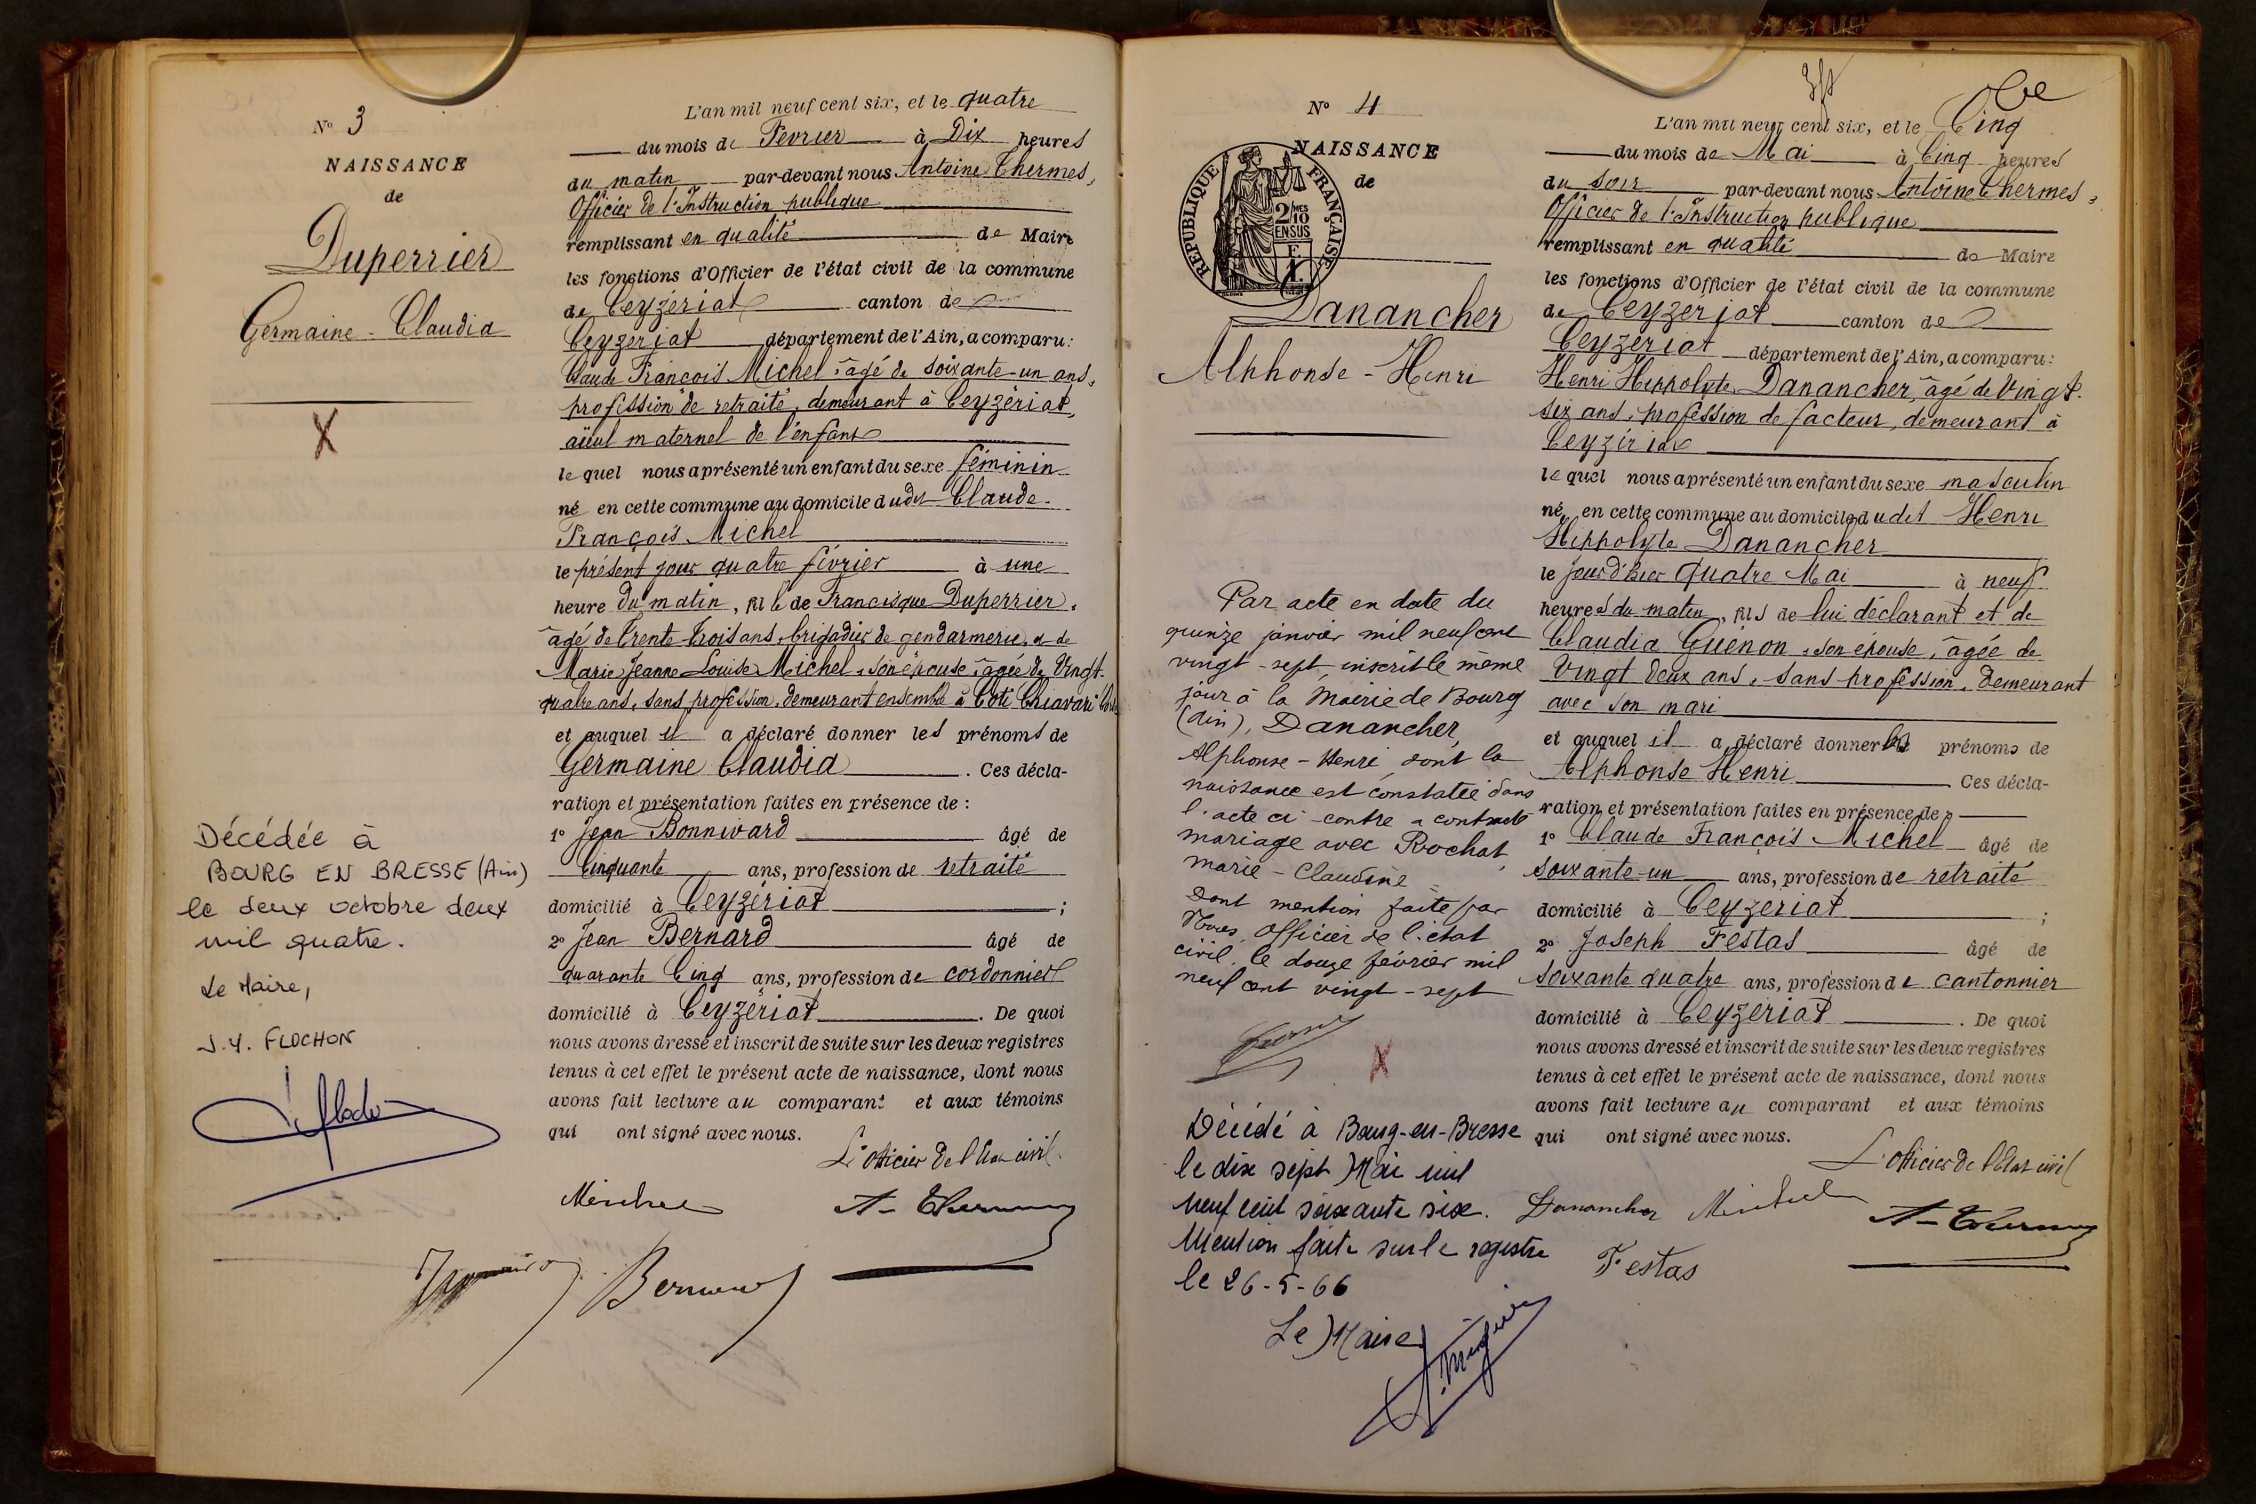 N° 3
NAISSANCE
de
Duperrier
Germaine - Claudia
X
Décédée à
BOURG EN BRESSE (Ain)
le deux octobre deux
mil quatre.
Le Maire,
J.Y. FLOCHON
L'an mil neuf cent six, et le quatre
du mois de Fevrier à Dix heures
du matin par-devant nous Antoine Thermes,
Officier de l'Instruction publique
remplissant en qualité de Maire
les fonctions d'Officier de l'état civil de la commune
de Ceyzériat canton de
Ceyzériat département de l'Ain, a comparu:
Claude François Michel, âgé de soixante-un ans,
profession de retraité, demeurant à Ceyzériat,
aïeul maternel de l'enfant
le quel nous a présenté un enfant du sexe féminin
né en cette commune au domicile dudit Claude-
François Michel
le présent jour quatre février à une
heure du matin, fille de Francisque Duperrier,
âgé de trente trois ans, brigadier de gendarmerie, et de
Marie Jeanne Louise Michel, son épouse, âgée de Vingt-
quatre ans, sans profession, demeurant ensemble à Coti Chiavari
et auquel il a déclaré donner les prénoms de
Germaine Claudia. Ces décla-
ration et présentation faites en présence de :
1° Jean Bonnivard âgé de
Cinquante ans, profession de retraité
domicilié à Ceyzériat ;
2° Jean Bernard âgé de
quarante Cinq ans, profession de cordonnier
domicilié à Ceyzériat. De quoi
nous avons dressé et inscrit de suite sur les deux registres
tenus à cet effet le présent acte de naissance, dont nous
avons fait lecture au comparant et aux témoins
qui ont signé avec nous.
L'officier de l'Etat civil
Michel A. Thermes
Bernard
N° 4
NAISSANCE
de
RÉPUBLIQUE FRANÇAISE
2/MES
10
EN SUS
Danancher
Alphonse - Henri
Par acte en date du
quinze janvier mil neuf cent
vingt-sept, inscrit le même
jour à la Mairie de Bourg
(Ain), Danancher,
Alphonse-Henri, dont la
naissance est constatée dans
l'acte ci-contre a contracté
mariage avec Rochat,
Marie-Claudine
Dont mention faite par
Nous, Officier de l'état
civil, le douze février mil
neuf cent vingt-sept
X
Décédé à Bourg-en-Bresse
le dix sept Mai mil
neuf cent soixante six.
Mention faite sur le registre
le 26-5-66
Le Maire
L'an mil neuf cent six, et le Cinq
du mois de Mai à Cinq heures
du soir par-devant nous Antoine Thermes,
Officier de l'Instruction publique
remplissant en qualité de Maire
les fonctions d'Officier de l'état civil de la commune
de Ceyzériat canton de
Ceyzériat département de l'Ain, a comparu:
Henri Hippolyte Danancher, âgé de Vingt-
six ans, profession de facteur, demeurant à
Ceyzériat
le quel nous a présenté un enfant du sexe masculin
né en cette commune au domicile dudit Henri
Hippolyte Danancher
le jour d'hier quatre Mai à neuf
heures du matin, fils de lui déclarant et de
Claudia Guénon, son épouse, âgée de
Vingt deux ans, sans profession, demeurant
avec son mari
et auquel il a déclaré donner les prénoms de
Alphonse Henri Ces décla-
ration et présentation faites en présence de :
1° Claude François Michel âgé de
soixante-un ans, profession de retraité
domicilié à Ceyzériat ;
2° Joseph Festas âgé de
soixante quatre ans, profession de cantonnier
domicilié à Ceyzériat. De quoi
nous avons dressé et inscrit de suite sur les deux registres
tenus à cet effet le présent acte de naissance, dont nous
avons fait lecture au comparant et aux témoins
qui ont signé avec nous.
L'officier de l'Etat civil
Danancher Michel A. Thermes
Festas